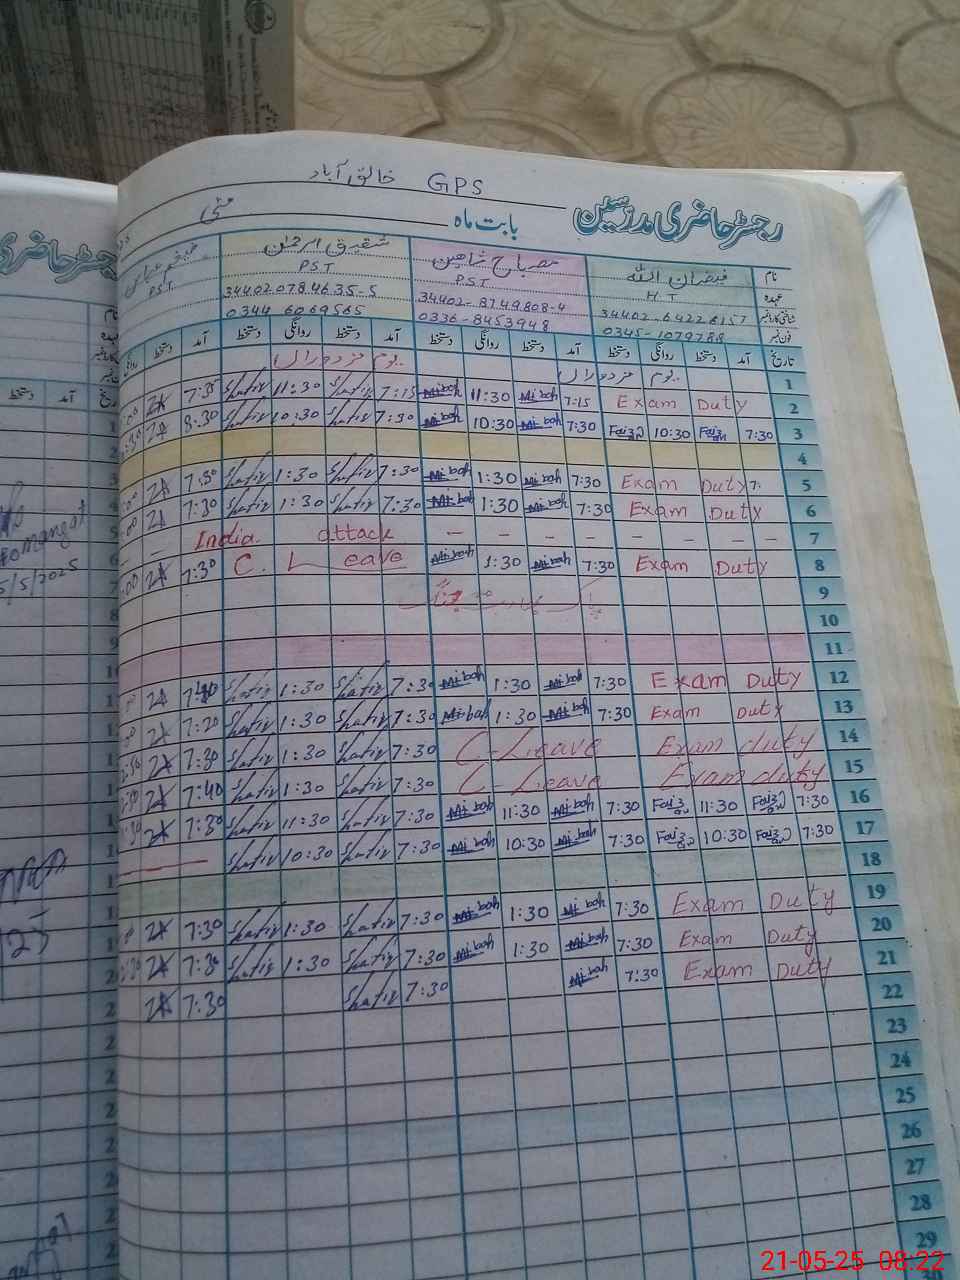 GPS خالق آباد
رجسٹر حاضری مدرسین بابت ماہ مئی
نام فیضان اللہ مصباح شاہین شفیق الرحمٰن
عہدہ H.T P.S.T P.S.T P.S.T
34402-6422815 7 34402-8749808-4 34402 0784635-5
فون نمبر 0345-1079788 0336-8453948 0344 6069565
تاریخ آمد دستخط روانگی دستخط آمد دستخط روانگی دستخط آمد دستخط روانگی دستخط آمد دستخط روانگی
1 یوم مزدوراں یوم مزدوراں
2 Exam Duty 7:15 Misbah 11:30 Misbah 7:15 Shafiq 11:30 Shafiq 7:35
3 7:30 Faizan 10:30 Faizan 7:30 Misbah 10:30 Misbah 7:30 Shafiq 10:30 Shafiq 8:30
4
5 Exam Duty 7:30 Misbah 1:30 Misbah 7:30 Shafiq 1:30 Shafiq 7:30
6 Exam Duty 7:30 Misbah 1:30 Misbah 7:30 Shafiq 1:30 Shafiq 7:30
7 India attack – – – – – – – –
8 Exam Duty 7:30 Misbah 1:30 Misbah C. Leave 7:30
9 پاک بھارت جنگ
10
11
12 Exam Duty 7:30 Misbah 1:30 Misbah 7:30 Shafiq 1:30 Shafiq 7:40
13 Exam Duty 7:30 Misbah 1:30 Misbah 7:30 Shafiq 1:30 Shafiq 7:20
14 Exam duty C-Leave 7:30 Shafiq 1:30 Shafiq 7:30
15 Exam duty C-Leave 7:30 Shafiq 1:30 Shafiq 7:40
16 7:30 Faizan 11:30 Faizan 7:30 Misbah 11:30 Misbah 7:30 Shafiq 11:30 Shafiq 7:30
17 7:30 Faizan 10:30 Faizan 7:30 Misbah 10:30 Misbah 7:30 Shafiq 10:30 Shafiq
18
19 Exam Duty 7:30 Misbah 1:30 Misbah 7:30 Shafiq 1:30 Shafiq 7:30
20 Exam Duty 7:30 Misbah 1:30 Misbah 7:30 Shafiq 1:30 Shafiq 7:30
21 Exam Duty 7:30 Misbah 7:30 Shafiq 7:30
22
23
24
25
26
27
28
29
5/5/2025
21-05-25 08:22